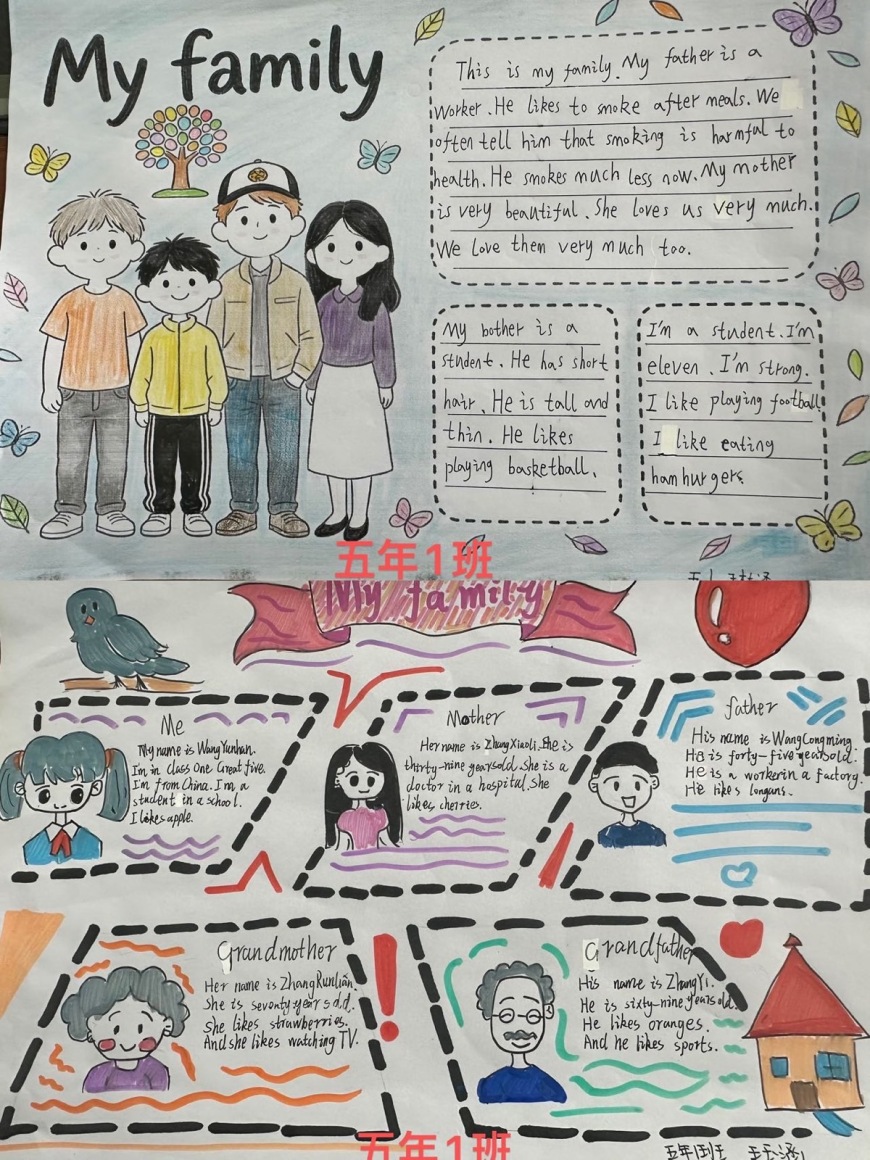 My family
This is my family. My father is a
worker. He likes to smoke after meals. We
often tell him that smoking is harmful to
health. He smokes much less now. My mother
is very beautiful. She loves us very much.
We love them very much too.
My bother is a
student. He has short
hair. He is tall and
thin. He likes
playing basketball.
I'm a student. I'm
eleven. I'm strong.
I like playing football
I like eating
hamhurgers.
五年1班
My family
Me
My name is WangYunhan.
I'm in class One Great five.
I'm from China. I'm a
student in a school.
I likes apple.
Mother
Her name is ZhangXiaoli. She is
thirty-nine yearsold. She is a
doctor in a hospital. She
likes cherries.
father
His name is WangCongming.
He is forty-five yearsold.
He is a workerin a factory.
He likes longans.
Grandmother
Her name is ZhangRunlian.
She is seventy years old.
She likes strawberries.
And she likes watching TV.
Grandfather
His name is ZhangYi.
He is sixty-nine yearsold.
He likes oranges.
And he likes sports.
五年1班
五年1班 王